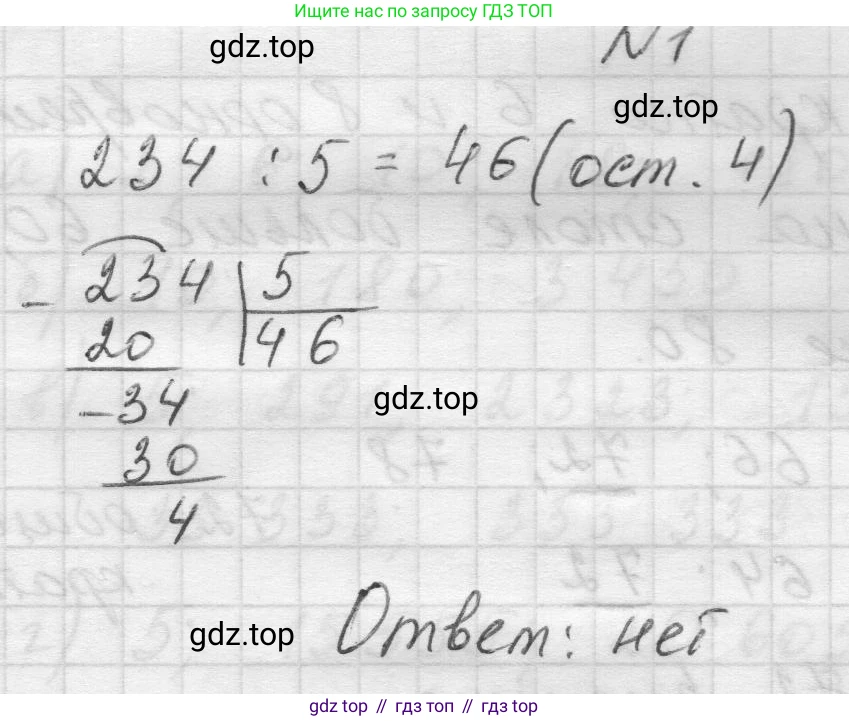 Ищите нас по запросу ГДЗ ТОП
gdz.top
N1
gdz.top
234 : 5 = 46 (ост. 4)
- 234 | 5
20 | 46
-34
gdz.top
30
4
gdz.top
Ответ: нет
gdz top // гдз топ // gdz top